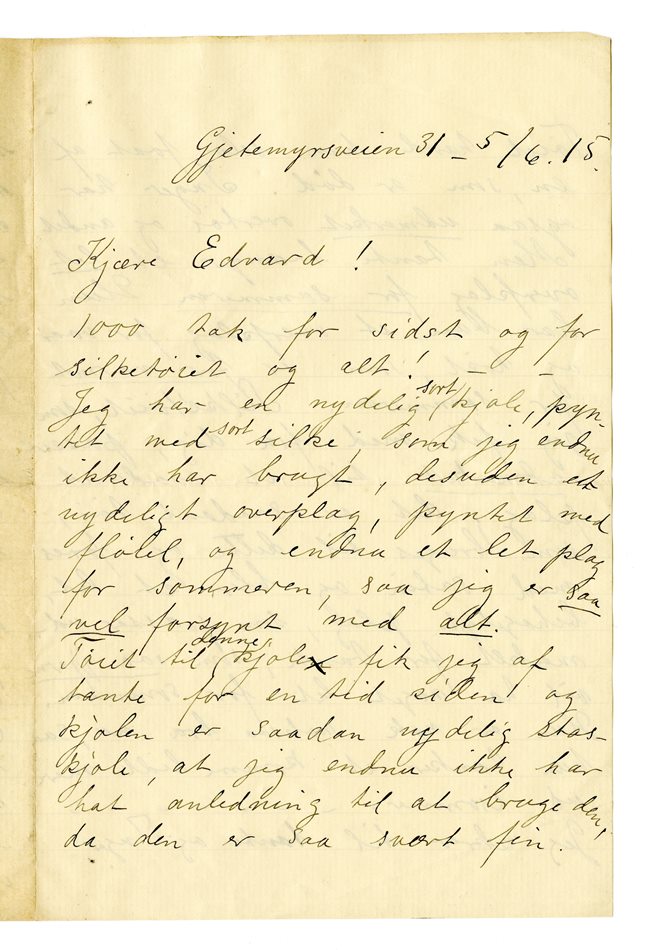 Gjetemyrsveien 31 – 5/6. 15.
Kjære Edvard!
1000 tak for sidst og for
silketøiet og alt! – –
Jeg har en nydelig sort kjole, pyn-
tet med sort silke, som jeg endnu
ikke har brugt, desuden et
nydeligt overplag, pyntet med
fløiel, og endnu et let plag
for sommeren, saa jig er saa
vel forsynt med alt.
Tøiet til denne kjole fik jeg af
tante for en tid siden og
kjolen er saadan nydelig stas-
kjole, at jig endnu ikke har
hat anledning til at bruge den,
da den er saa svært fin.